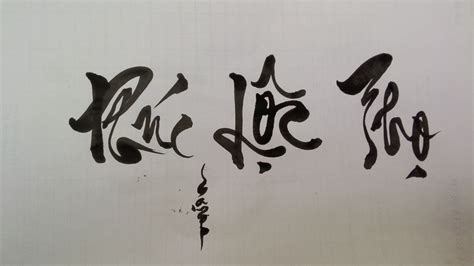 Phúc Lộc Thọ